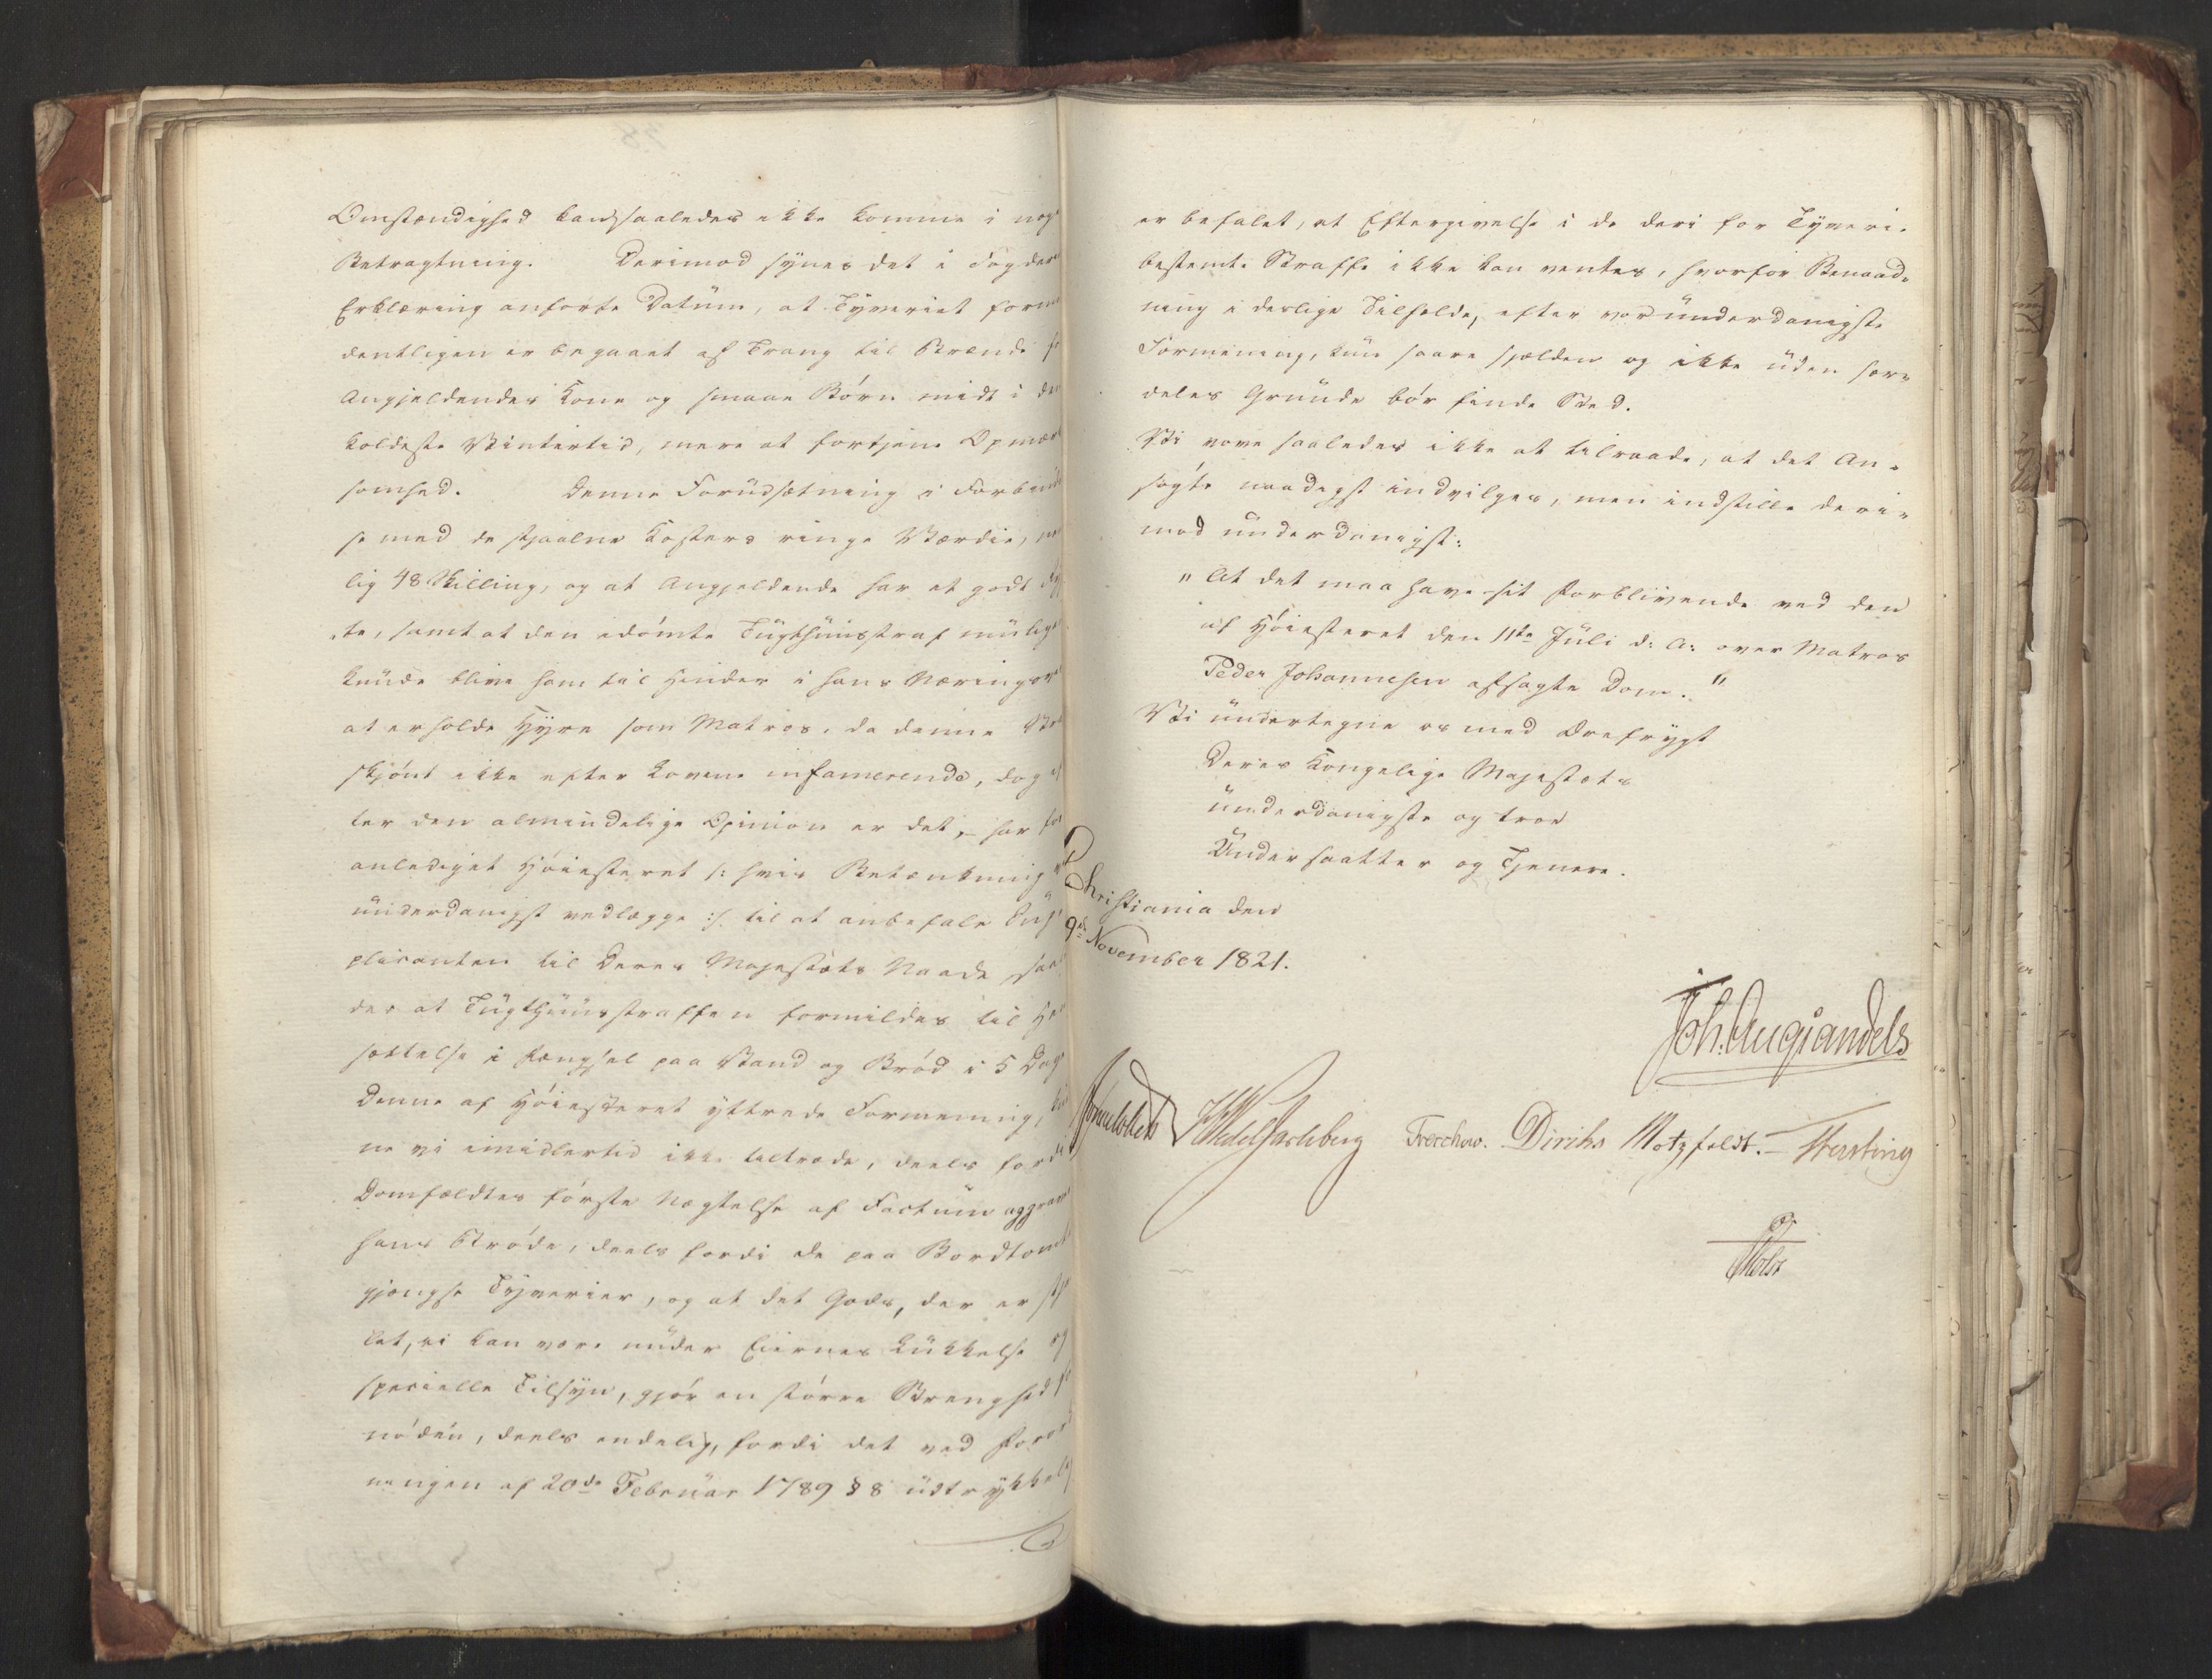 Omstændighed kan saaledes ikke komme i nog
Betragtning. Derimod synes det i Fogdens
Erklæring anførte Datüm, at Tyveriet forme
dentligen er begaaet af Trang til Brænde
Angjeldendes Kone og smaae Børn midt i den
koldeste Vintertid, mere at fortjene Opmærk
somhed. Denne Forüdsætning i Forbindel
se med de stjaalne Kosters ringe Værdie, nem
lig 48 Skilling, og at Angjeldende har et godt
te, samt at den idømte Tügthüüsstraf müligen
künde blive ham til Hinder i hans Næringsvei
at erholde Hyre som Matros, da denne Straf
skjønt ikke efter Lovene infamerende, dog ef
ter den almindelige Opinion er det, har for
anlediget Høiesteret /: hvis Betænkning vi
ünderdanigst vedlægge :/ til at anbefale Süp
plicanten til Deres Majestæts Naade, saale
des at Tügthüüsstraffen formildes til Hen
sættelse i Fængsel paa Vand og Brød i 5 Dage
Denne af Høiesteret yttrede Formening, kün
ne vi imidlertid ikke tiltræde, deels fordi
Domfældtes første Nægtelse af Factüm aggrave
hans Brøde, deels fordi de paa Bordtomt
gjængse Tyverier, og at det Gods, der er stjaa
let, ei kan være ünder Eiernes Lükkelse og
specielle Tilsyn, gjør en større Strenghed for
nøden, deels endelig, fordi det ved Forord
ningen af 20de Febrüar 1789 § 8 üdtrykkelig
er befalet, at Eftergivelse i de deri for Tyverie
bestemte Straffe ikke kan ventes, hvorfor Benaad-
ning i deslige Tilfælde, efter vor ünderdanigste
Formening, kün saare sjælden og ikke üden sær-
deles Gründe bør finde Sted.
Vi vove saaledes ikke at tilraade, at det An-
søgte naadigst indvilges, men indstille deri-
mod ünderdanigst:
"At det maa have sit Forblivende ved den
af Høiesteret den 11te Jüli d: A: over Matros
Peder Johannesen afsagte Dom."
Vi ündertegne os med Ærefrygt
Deres Kongelige Majestæts
ünderdanigste og troe
Ündersaatter og Tjenere.
Christiania den
9de November 1821.
Joh: Aug: Sandels
Sommerhielm HWedel Jarlsberg Treschow. Diriks Motzfeldt. – Fasting
Holst